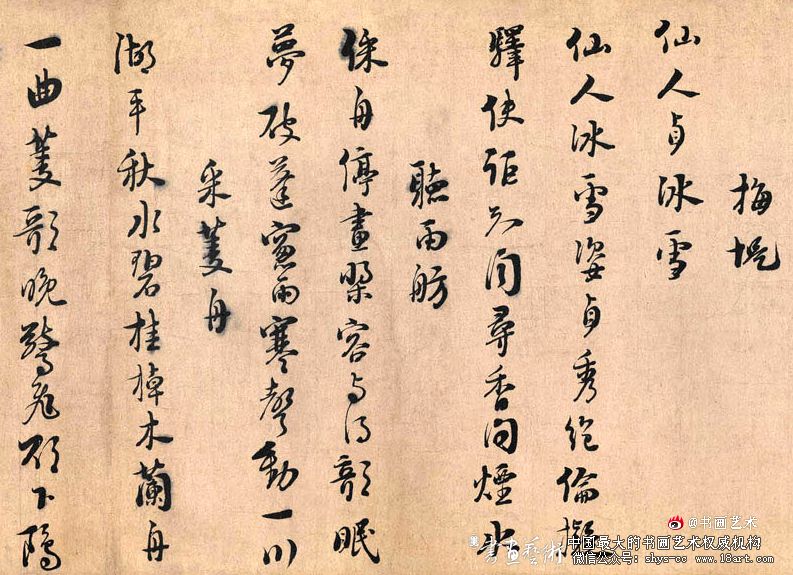 梅堤
仙人貞冰雪
仙人冰雪姿貞秀絕倫擬
驛使詎知聞尋香問煙水
聽雨舫
綵舟停畫槳容与得欹眠
夢破蓬窻雨寒聲動一川
采菱舟
湖平秋水碧桂棹木蘭舟
一曲菱歌晚驚飛欲下鷗
@书画艺术
書畫藝術
中国最大的书画艺术权威机构
微信公众号: shys-cc www.18art.com